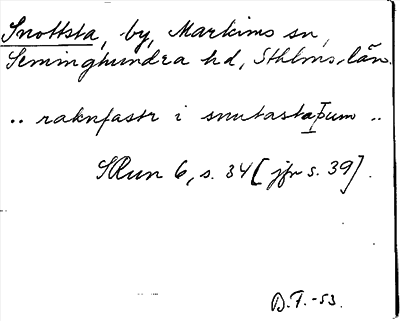 Snottsta, by, Markims sn,
Seminghundra hd, Sthlms län.
.. raknfastr i snutastaþum ..
SRun 6, s. 34 [jfr s. 39].
D.F. -53.